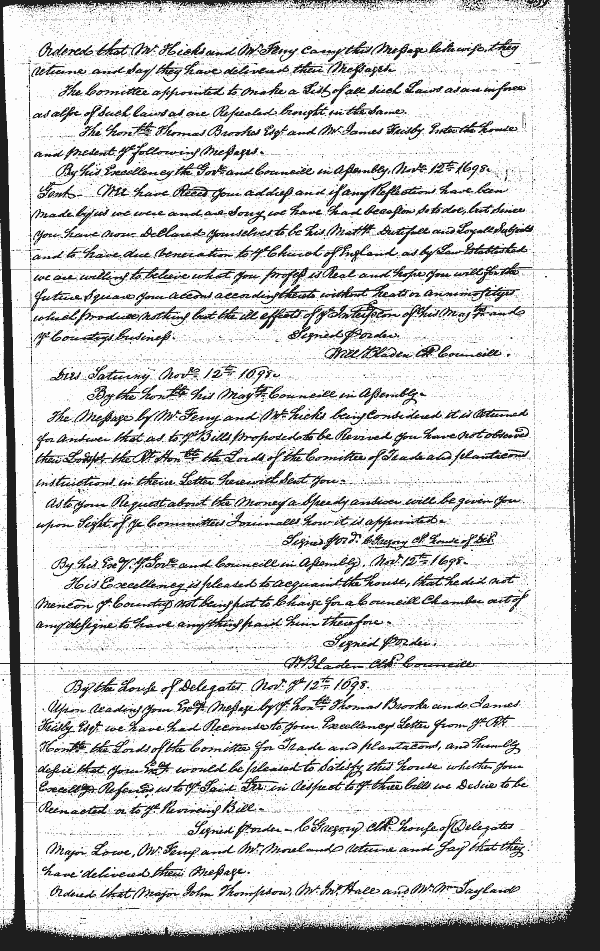 Ordered that Mr. Hicks and Mr. Ferry carry this Message likewise. they
returne and Say they have delivered their Messages.
The Comittee appointed to make a List of all Such Laws as are in force
as alsoe of Such laws as are Repealed brought in the Same.
The honble Thomas Brooke Esqr and Mr. James Keisby Enter the house
and present ye following Messages.
By his Excellency the Govr. and Councill in Assembly, Novr. 12th 1698.
Gent. Wee have Read your address and if any Reflections have been
made by us we were and are Sorry we have had occasion So to doe, but Since
you have now Declared yourselves to be his Matys. Dutifull and Loyall Subjects
and to have due veneration to ye Church of England, as by Law Established
we are willing to believe what you profess is Real and hope you will for the
future Square your actions according thereto without heats or annimosityes
which produce nothing but the ill effects of ye of his Majtys and
ye Countrys business. Signed p order.
Will Bladen Clk Councill.
Dies Saturny. Novr. 12th. 1698.
By the honble his Mays. Councill in Assembly.
The Message by Mr. Ferry and Mr. Hicks being Considered it is returned
for answer that as to ye Bills proposed to be Revived you have not observed
the Rt. Honble the Lords of the Comittee of Trade and plantacons
instructions in their Letter herewith Sent you.
As to your Request about the Money a Speedy answer will be given you
upon Sight of ye Committees Journall how it is appointed.
Signed p ord. C Gregory Clk house of Del.
By his Excy. ye Govr. and Councill in Assembly, Novr. 12th 1698.
His Excellency is pleased to acquaint the house, that he did not
mencon ye Country not being put to Charge for a Councill Chamber out of
any designe to have anything paid him therefore.
Signed p order.
W Bladen Clk. Councill
By the house of Delegates Novr. ye 12th 1698.
Upon reading your Excys. Message by ye honble Thomas Brooke and James
Keisby Esqrs. we have had Recourse to your Excellency Letter from ye Rt.
Honble. the Lords of the Comittee for Trade and plantacons, and humbly
desire that your Excy. would be pleased to Satisfy this house whether your
Excellcy. us to ye Said in respect to ye three bills we Desire to be
Reenacted or to ye Reviveing Bill.
Signed p order - C Gregory Clk. house of Delegates
Major Lowe, Mr. Ferry and Mr. Moreland returne and Say that they
have delivered their Message.
Ordered that Major John Thompson, Mr. Jno. Hall and Mr. Wm. Tayland